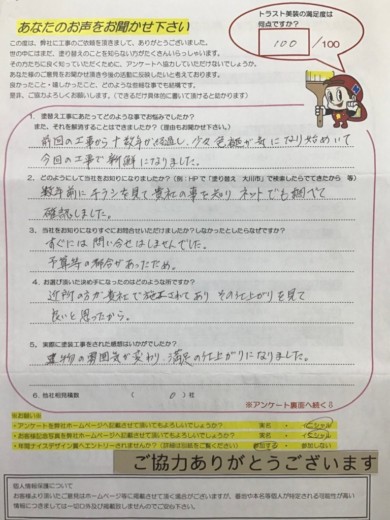 あなたのお声をお聞かせ下さい
トラスト美装の満足度は
何点ですか?
100 /100
この度は、弊社に工事のご依頼を頂きまして、ありがとうございました。
世の中にはまだ、塗り替えのことを知らない方がたくさんいらっしゃいます。
その方たちに良く知っていただくために、アンケート協力していただけないでしょうか。
あなた様のご意見をお聞かせ頂き今後の活動に反映したいと考えております。
良かったこと・嬉しかったこと、どのような些細な事でも結構です。
是非、ご協力よろしくお願いします。(できるだけ具体的に書いて頂けると助かります)
1. 塗替え工事にあたってどのような事でお悩みでしたか?
また、それを解消することはできましたか?(理由もお聞かせ下さい。)
前回の工事から十数年が経過し、少々色褪が気になり始めていて
今回の工事で新鮮になりました。
2. どのようにして当社をお知りになりましたか?(例:HPで「塗り替え 大川市」で検索したらでてきたから 等)
数年前にチラシを見て貴社の事を知り ネットでも調べて
確認しました。
3. 当社をお知りになりすぐにお問合せいただけましたか?しなかったとしたらなぜですか?
すぐには問い合せはしませんでした。
予算等の都合があったため。
4. お選び頂いた決め手になったのはどのような所ですか?
近所の方が貴社で施工されており その仕上がりを見て
良いと思ったから。
5. 実際に塗装工事をされた感想はいかがでしたか?
建物の雰囲気が変わり、満足の仕上がりになりました。
6. 当社相見積数 ( 0 )社
※アンケート裏面へ続く⇩
※お願い※
・アンケートを弊社ホームページへ記載させて頂いてもよろしいでしょうか? 実名 ・ イニシャル
・お客様記念写真を弊社ホームページへ記載させて頂いてもよろしいでしょうか? 実名 ・ イニシャル
・年間ナイスデザイン賞へエントリーされませんか?(詳細は別紙をご覧ください) 参加する ・ 参加しない
ご協力ありがとうございます
個人情報保護について
お客様より頂いたご意見はホームページ等に掲載させて頂く場合がございますが、番地や本名等個人が特定される可能性が高い
情報につきましては一切公外及び掲載致しませんのでご安心下さい。